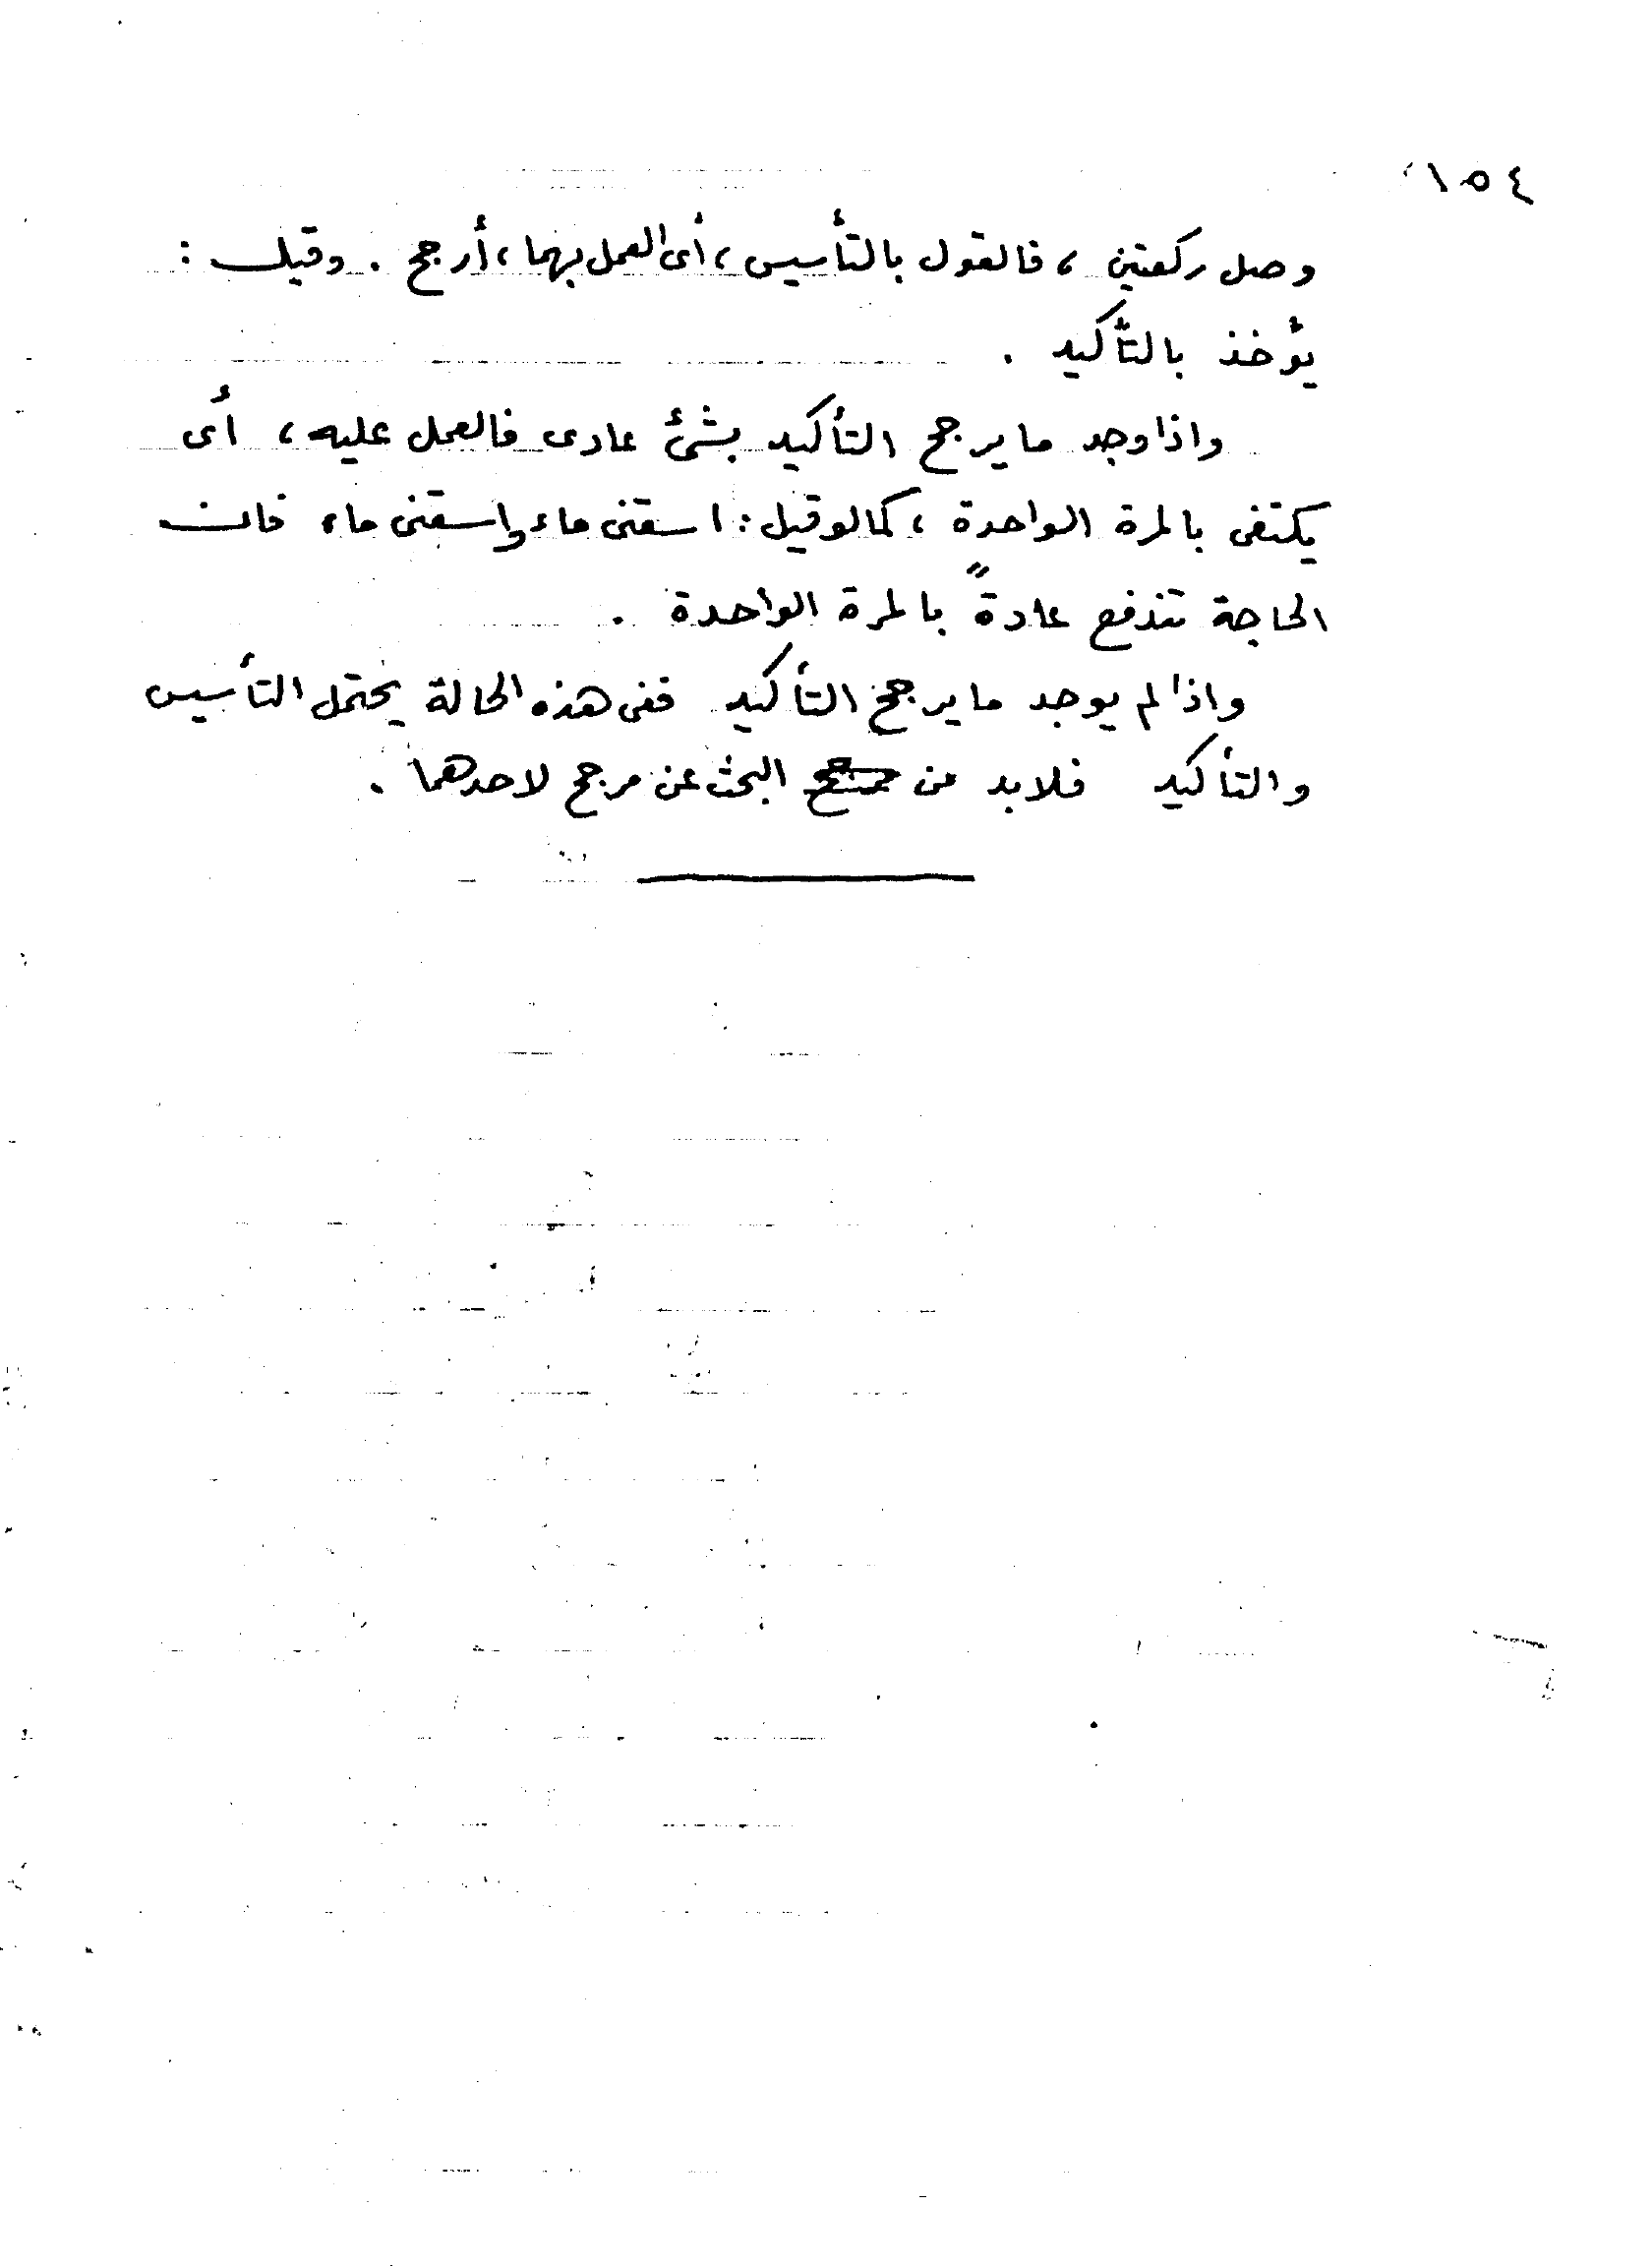 ١٥٤
وصل ركعتين ، فالقول بالتأسيس ، أى العمل بهما ، أرجح . وقيل :
يؤخذ بالتأكيد .
واذا وجد ما يرجح التأكيد بشئ عادى فالعمل عليه ، أى
يكتفى بالمرة الواحدة ، كما لو قيل : اسقنى ماء واسقنى ماء فان
الحاجة تندفع عادةً بالمرة الواحدة .
واذا لم يوجد ما يرجح التأكيد ففى هذه الحالة يحتمل التأسيس
والتأكيد فلا بد من البحث عن مرجح لاحدهما .